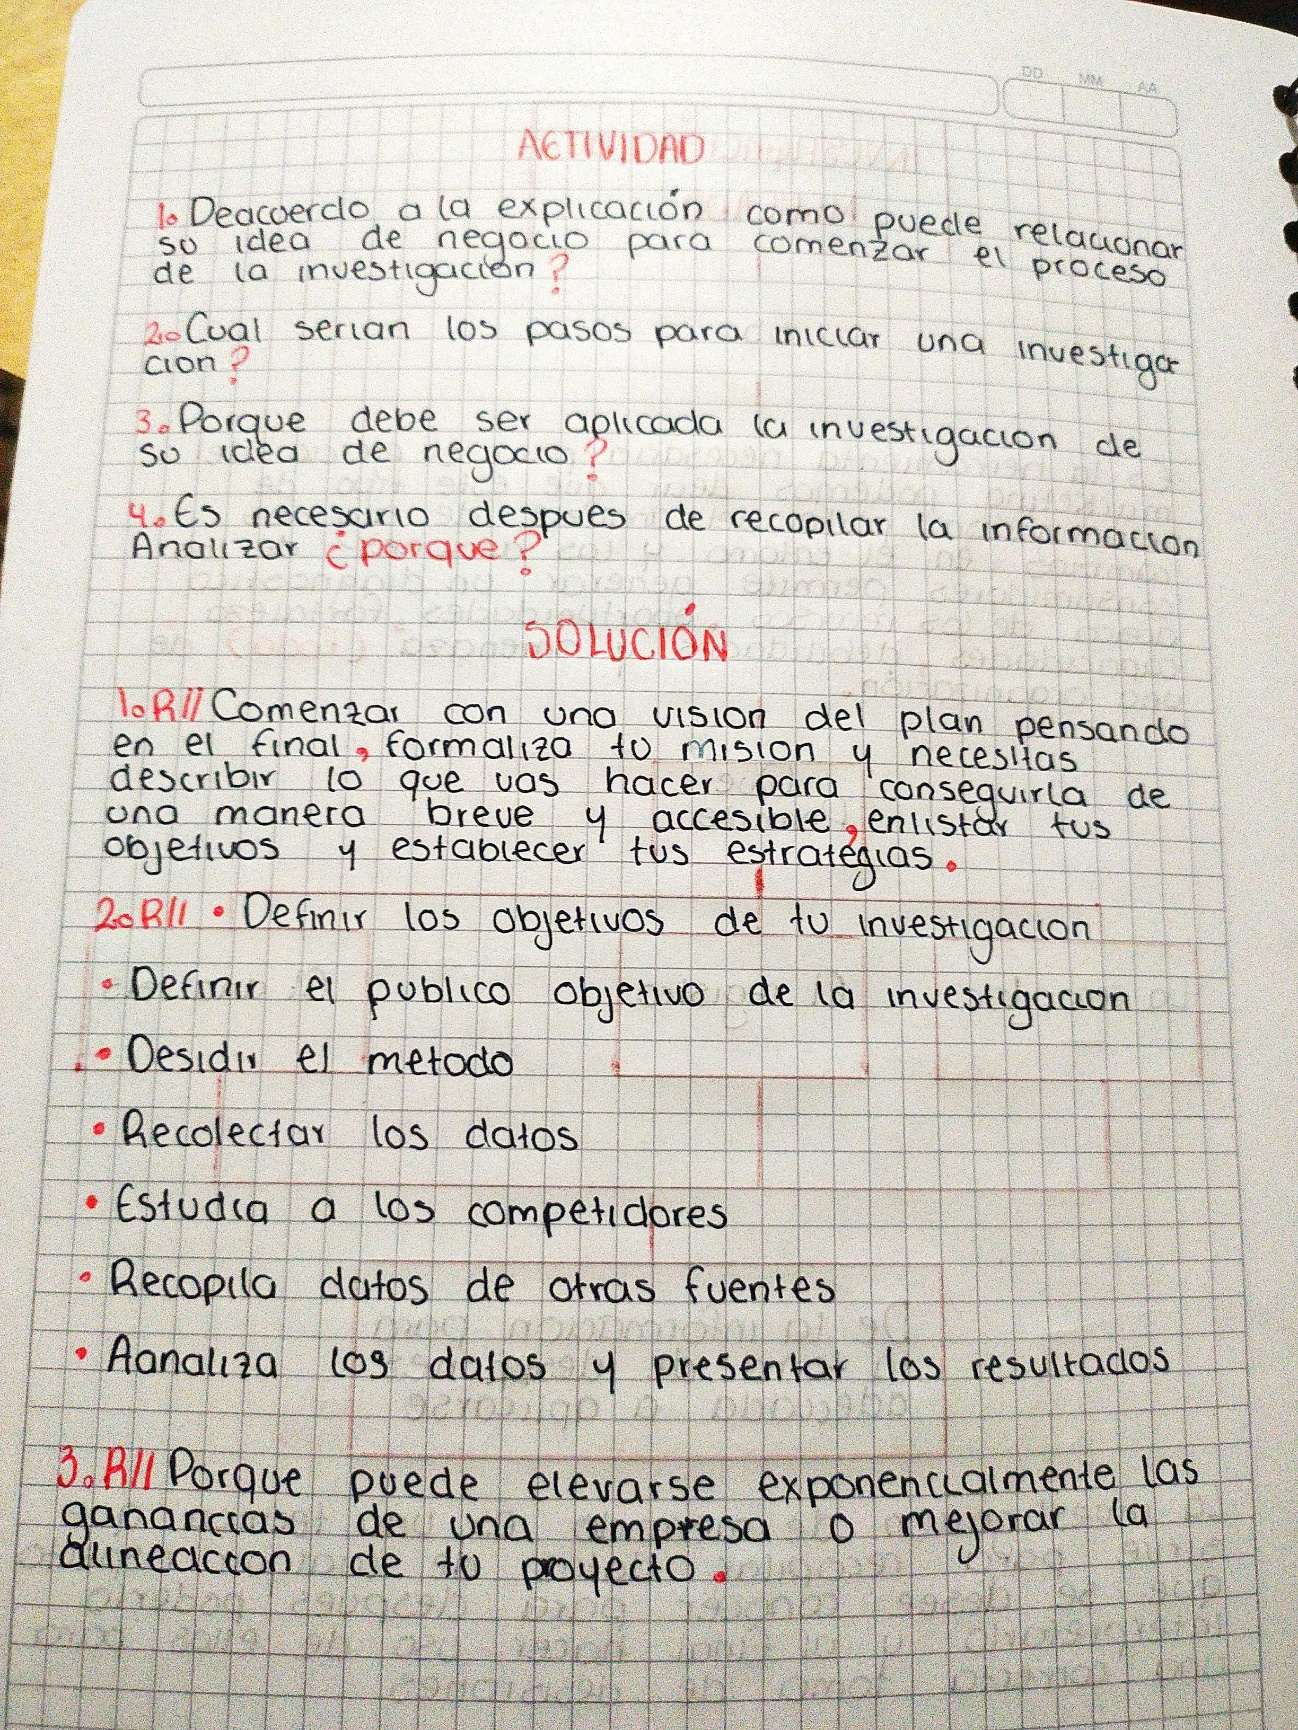 DD MM AA
ACTIVIDAD
1. Deacuerdo a la explicación como puede relacionar
su idea de negocio para comenzar el proceso
de la investigación?
2. Cual serian los pasos para iniciar una investiga
cion?
3. Porque debe ser aplicada la investigacion de
su idea de negocio?
4. Es necesario despues de recopilar la informacion
Analizar ¿porque?
SOLUCIÓN
1.R// Comenzar con una vision del plan pensando
en el final, formaliza tu mision y necesitas
describir lo que vas hacer para conseguirla de
una manera breve y accesible, enlistar tus
objetivos y establecer tus estrategias.
2.R// • Definir los objetivos de tu investigacion
• Definir el publico objetivo de la investigacion
• Desidir el metodo
• Recolectar los datos
• Estudia a los competidores
• Recopila datos de otras fuentes
• Aanaliza los datos y presentar los resultados
3.R// Porque puede elevarse exponencialmente las
ganancias de una empresa o mejorar la
alineaccion de tu proyecto.